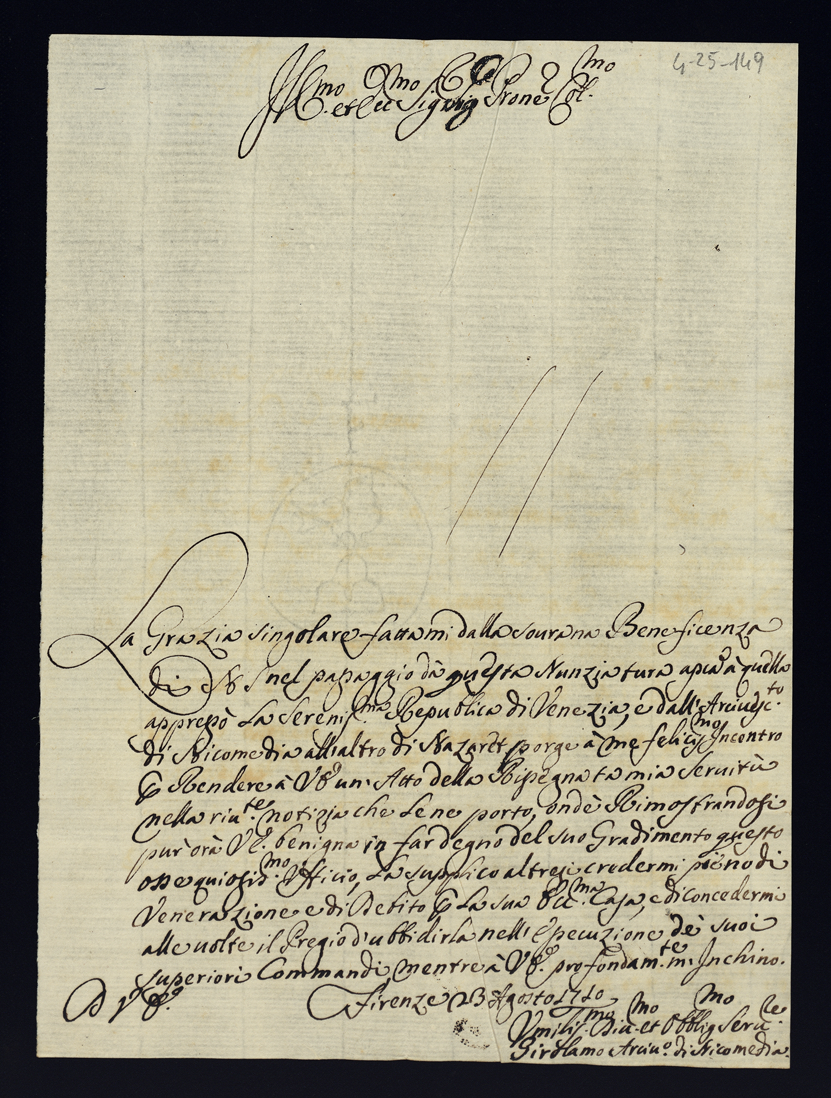 4-25-149
Ill.mo et Ecc.mo Sig.r Sig.r Prone Col.mo
La Grazia singolare fattami dalla sourana Beneficenza
di N S nel passaggio dà questa Nunziatura à quella
appresso La Sereniss.ma Republica di Venezia, e dall'Arciuesc.to
di Nicomedia all'altro di Nazaret porge à me feliciss.mo Incontro
Rendere à V E un' Atto della Rispegnata mia Seruitù
nella riu.te notizia che Le ne porto, onde Rimostrandosi
pur' orà V E. benigna in far degno del suo Gradimento questo
ossequiosiss.mo Vfficio, La supplico altresi credermi pieno di
Venerazione e di Debito La sua Ecc.ma Casa, e di concedermi
alle uolte il Pregio d'ubbidirla nell'Esecuzione de' suoi
superiori Commandi mentre à V E. profondam.te m'Inchino.
D V E. Firenze 23 Agosto 1710
Vmiliss.mo Diu.mo et Obblig.mo Seru.re
Girolamo Arciu.o di Nicomedia.